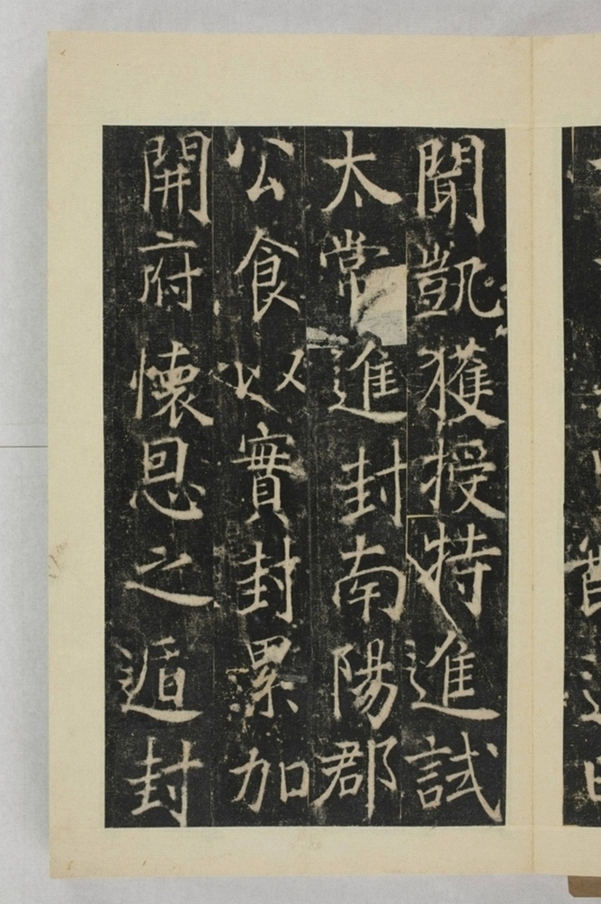 聞凱獲授特進試
太常進封南陽郡
公食以實封累加
開府懷恩之遁封